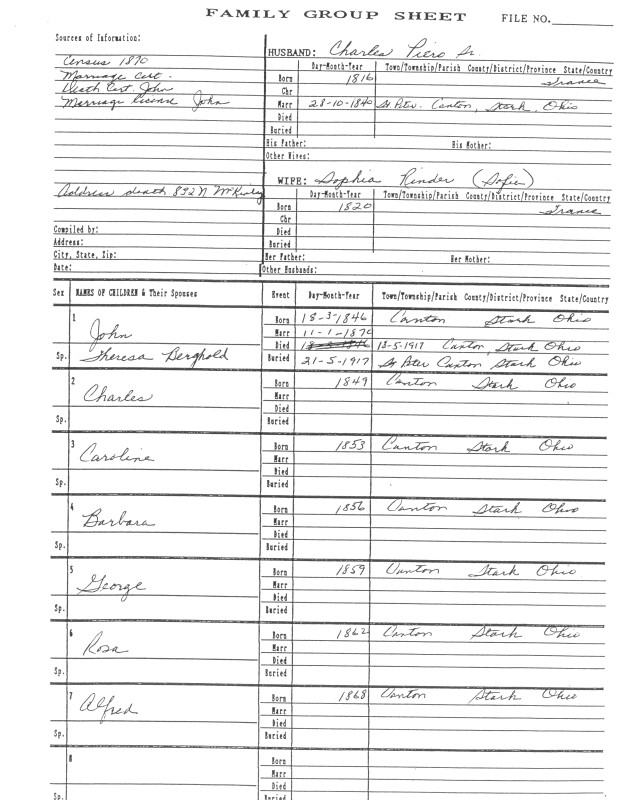 FAMILY GROUP SHEET FILE NO.
Sources of Information:
Census 1870
Marriage Cert.
Death Cert. John
Marriage license John
Address death 892 N McKinley
Compiled by:
Address:
City, State, Zip:
Date:
HUSBAND: Charles Piero Sr.
Day-Month-Year Town/Township/Parish County/District/Province State/Country
Born 1816 France
Chr
Marr 28-10-1840 St Peter. Canton, Stark, Ohio
Died
Buried
His Father: His Mother:
Other Wives:
WIFE: Sophia Rinder (Sofie)
Day-Month-Year Town/Township/Parish County/District/Province State/Country
Born 1820 France
Chr
Died
Buried
Her Father: Her Mother:
Other Husbands:
Sex NAMES OF CHILDREN & Their Spouses Event Day-Month-Year Town/Township/Parish County/District/Province State/Country
1 John Born 18-3-1846 Canton Stark Ohio
Marr 11-1-1870
Died 13-5-1917 Canton, Stark Ohio
Sp. Theresa Berghold Buried 21-5-1917 St Peter Canton Stark Ohio
2 Charles Born 1849 Canton Stark Ohio
Marr
Died
Sp. Buried
3 Caroline Born 1853 Canton Stark Ohio
Marr
Died
Sp. Buried
4 Barbara Born 1856 Canton Stark Ohio
Marr
Died
Sp. Buried
5 George Born 1859 Canton Stark Ohio
Marr
Died
Sp. Buried
6 Rosa Born 1862 Canton Stark Ohio
Marr
Died
Sp. Buried
7 Alfred Born 1868 Canton Stark Ohio
Marr
Died
Sp. Buried
8 Born
Marr
Died
Sp. Buried